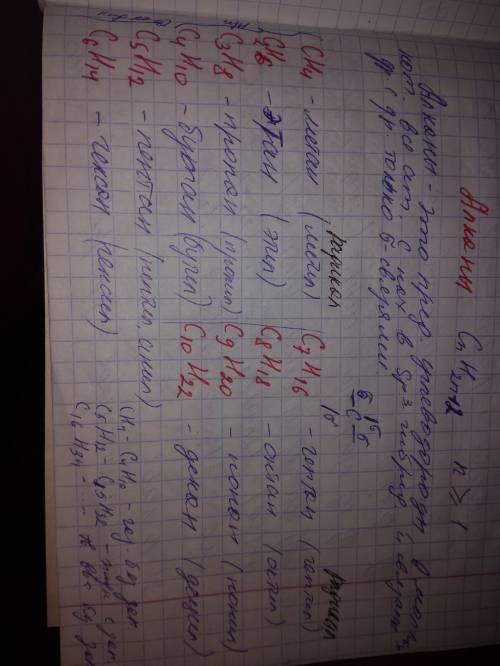 Алканы CnH2n+2 n ≥ 1
Алканы - это пред. углеводороды, в молек.
кот. все ат. C нах. в sp³ гибрид. и связаны
др. с др. только σ-связями.
радикал
CH4 - метан (метил)
C2H6 - этан (этил)
C3H8 - пропан (пропил)
C4H10 - бутан (бутил)
C5H12 - пентан (пентил, амил)
C6H14 - гексан (гексил)
радикал
C7H16 - гептан (гептил)
C8H18 - октан (октил)
C9H20 - нонан (нонил)
C10H22 - декан (децил)
CH4 - C4H10 - газ. без зап.
C5H12 - - жидк. с зап.
C16H34 - ... - тв. в-ва без зап.